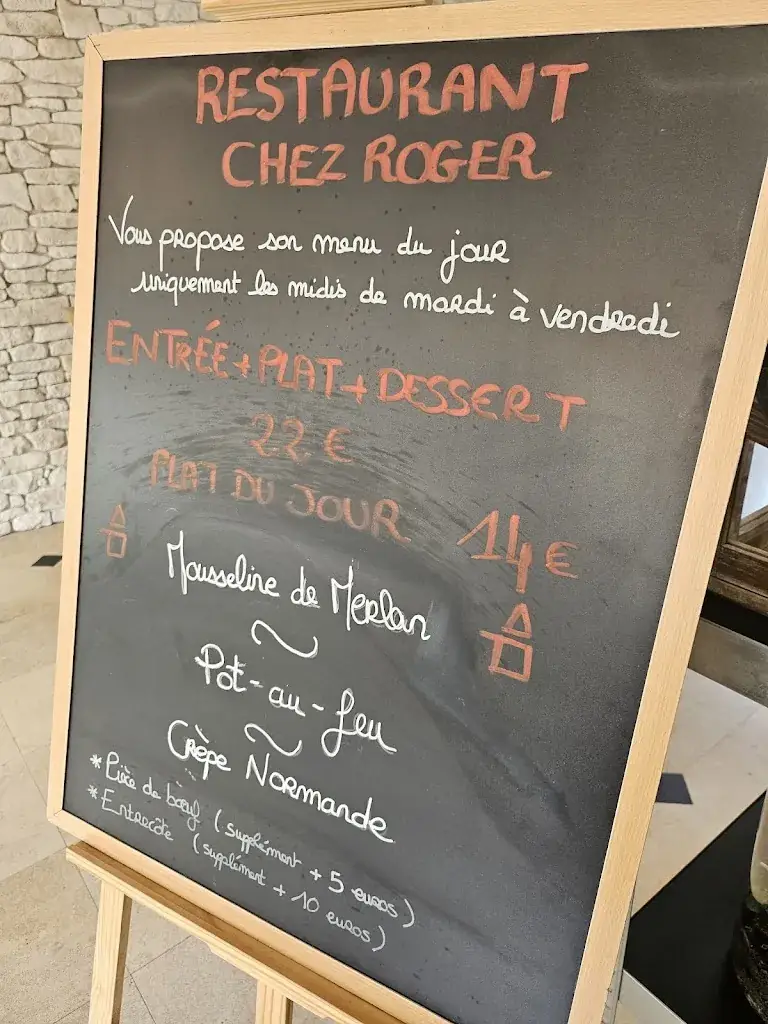 RESTAURANT
CHEZ ROGER
Vous propose son menu du jour
uniquement les midis de mardi à vendredi
ENTRÉE + PLAT + DESSERT
22 €
PLAT DU JOUR 14 €
Mousseline de Merlan
Pot-au-feu
Crèpe Normande
* Pièce de bœuf (supplément + 5 euros)
* Entrecôte (supplément + 10 euros)